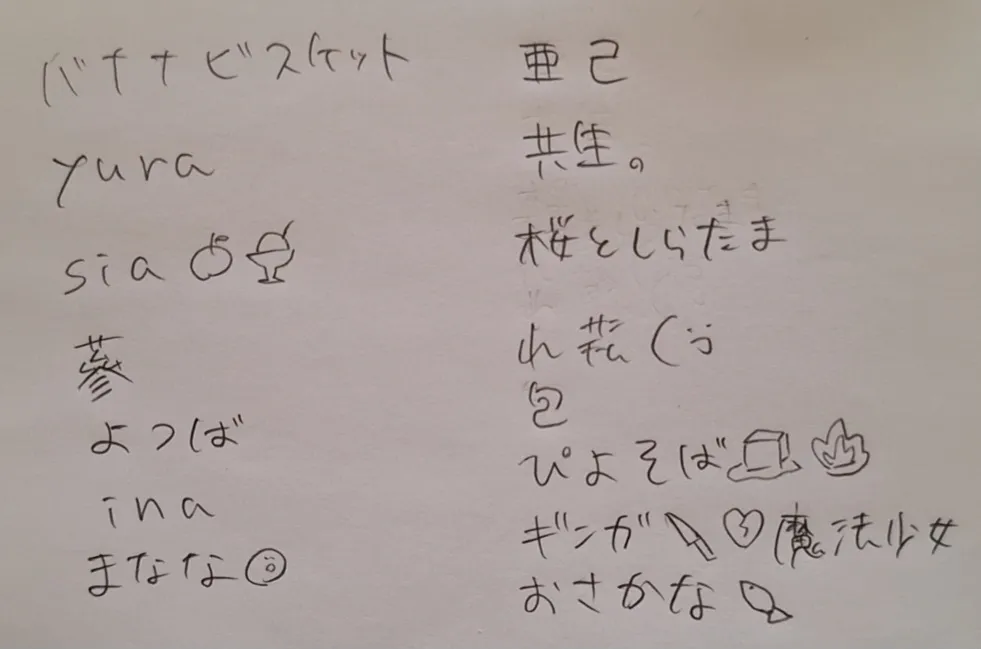 バナナビスケット
yura
sia
蔘
よつば
ina
まなな
亜己
共生。
桜としらたま
れ
包
ぴよそば
ギンガ 魔法少女
おさかな